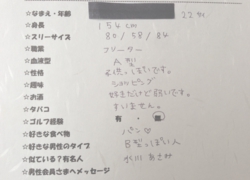 ☆なまえ・年齢 22才
☆身長 154cm
☆スリーサイズ 80/58/84
☆職業 フリーター
☆血液型 A型
☆性格 子供っぽいです。
☆趣味 ショッピング
☆お酒 好きだけど弱いです。
☆タバコ すいません。
☆ゴルフ経験 有・無
☆好きな食べ物 パン♡
☆好きな男性のタイプ B型っぽい人
☆似ている?有名人 水川あさみ
☆男性会員さまへメッセージ